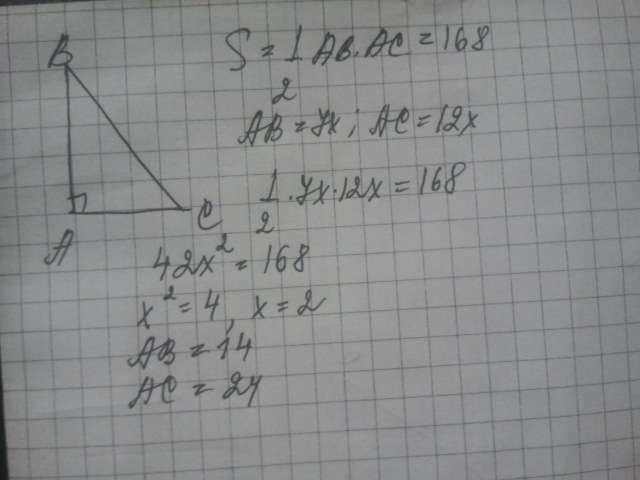 B
A
C
S = 1/2 AB · AC = 168
AB = 7x ; AC = 12x
1/2 · 7x · 12x = 168
42x² = 168
x² = 4, x = 2
AB = 14
AC = 24